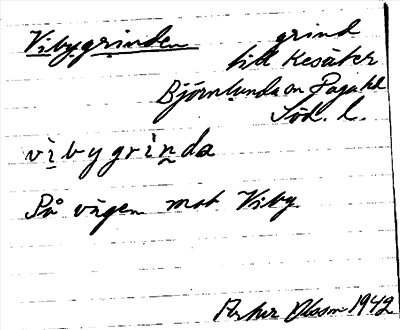 Vibygrinden grind
till Kesäter
Björnlunda sn Daga hd
Söd. l.
vìbygrìnda
På vägen mot Viby
Olsson 1942